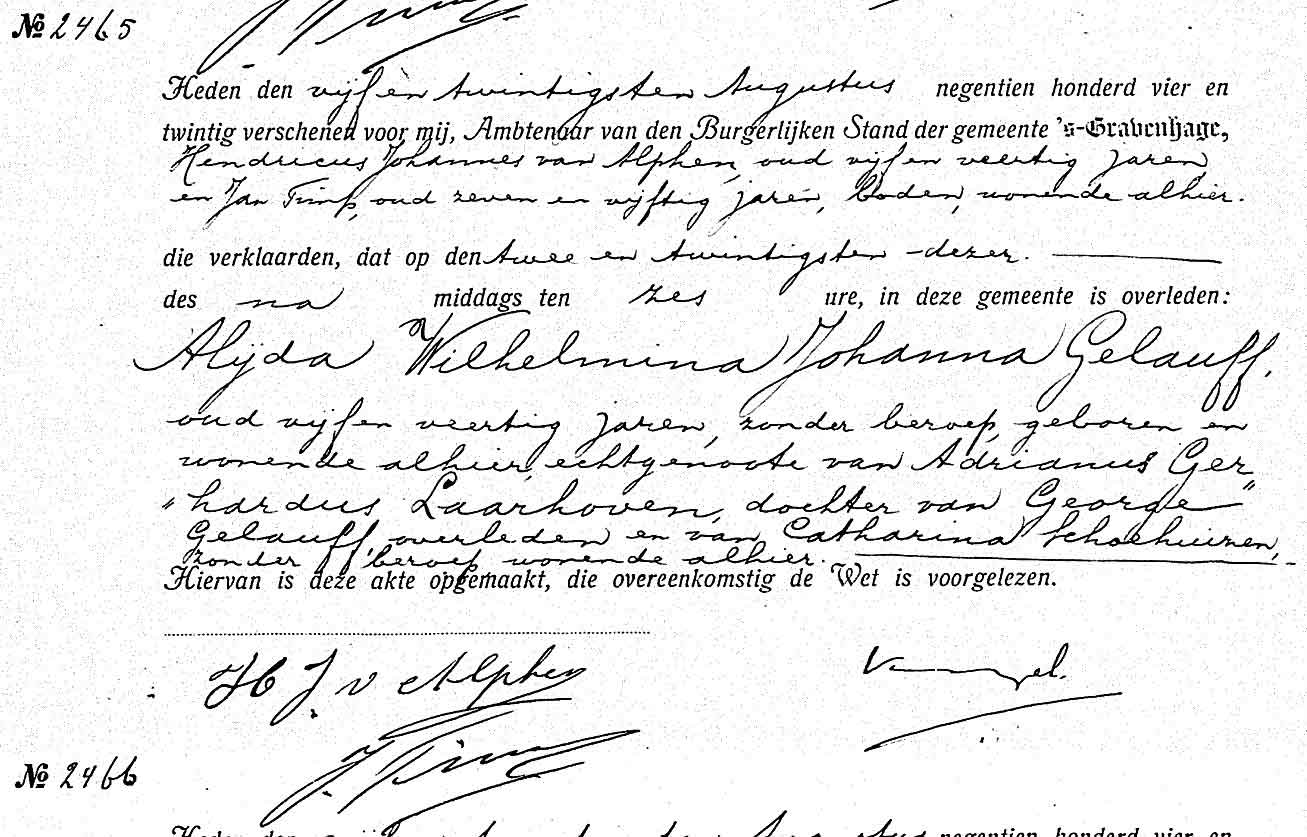 № 2465
Heden den vijf en twintigsten Augustus negentien honderd vier en
twintig verschenen voor mij, Ambtenaar van den Burgerlijken Stand der gemeente 's-Gravenhage,
Hendricus Johannes van Alphen, oud vijf en veertig jaren
en Jan Timp, oud zeven en vijftig jaren, boden, wonende alhier.
die verklaarden, dat op den twee en twintigsten dezer.
des na middags ten zes ure, in deze gemeente is overleden:
Alijda Wilhelmina Johanna Gelauff.
oud vijf en veertig jaren, zonder beroep, geboren en
wonende alhier, echtgenoote van Adrianus Ger„
"hardus Laarhoven, dochter van George
Gelauff, overleden en van Catharina Schoehuizen,
zonder beroep wonende alhier.
Hiervan is deze akte opgemaakt, die overeenkomstig de Wet is voorgelezen.
H J v Alphen
№ 2466
Heden den negentien honderd vier en